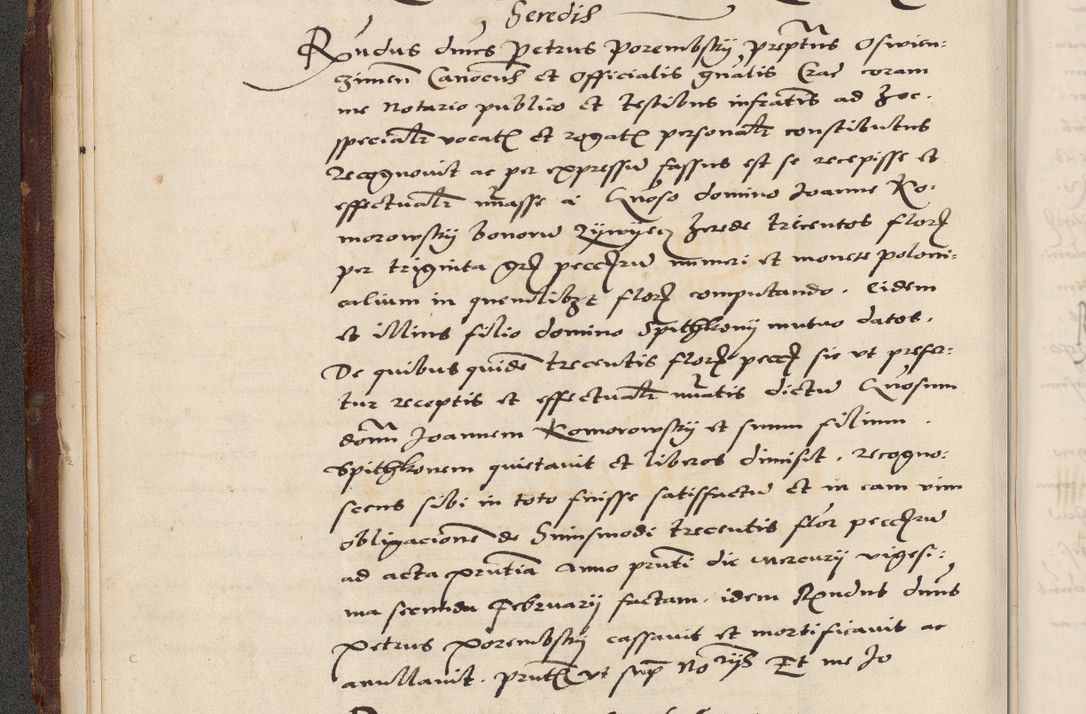 Heredis
Rndus dnus Petrus Porembskÿ preptus Oswien:
czimen Canoens et Officialis gnalis Crac coram
me Notario publico et testibus infratis ad hoc
specialr vocat et rogat personalr constitutus
recognovit ac per expressu fassus est se recepisse et
effectualr nasse a Gnoso domino Joanne Ko:
morowskÿ bonoru Zÿwÿecz herede trecentos flor
per triginta gr peccru numeri et monete poloni:
calium in quemlibzt flor computando . Eidem
et illius filio domino Spithkonÿ mutuo datos .
De quibus quide trecentis flor pecc sic ut prefer:
tur receptis et effectualr nuatis dictu Gnosum
donu Joannem Komorowskÿ et suum filium .
Spithkonem quietavit et liberos dimisit . recogno:
scens sibi in toto fuisse satisfactu et in eam vim
obligacione de huiusmodi trecentis flor peccru
ad acta prntia Anno prnti die mercurÿ vigesi:
ma secunda Februarÿ factam . idem Rndus dnus
Petrus Porembskÿ cassavit et mortificavit ac
annullavit . prntib ut sup No rÿs Et me Jo